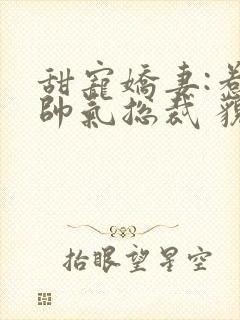 甜寵嬌妻:惹
帥氣總裁
抬眼望星空